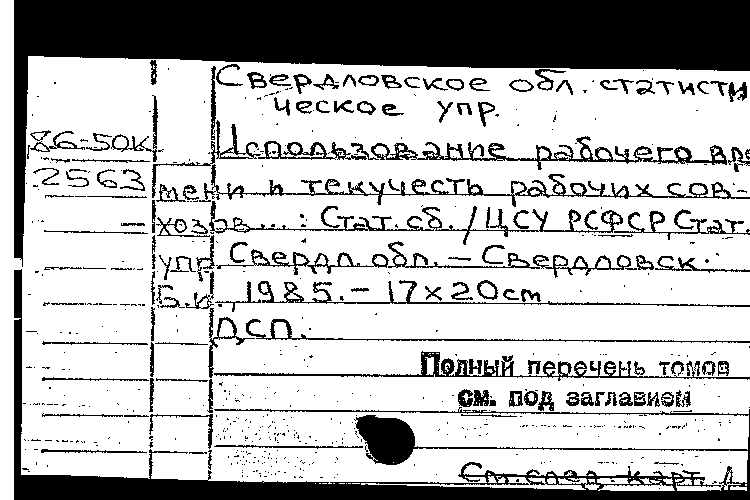 Свердловское обл. статисти
ческое упр.
86-50К
Использование рабочего вре
2563
мени и текучесть рабочих сов-
— хозов...: Стат. сб. / ЦСУ РСФСР, Стат.
упр. Свердл. обл. — Свердловск.
Б.и., 1985. — 17х20см.
ДСП.
Полный перечень томов
см. под заглавием
См. след. карт.